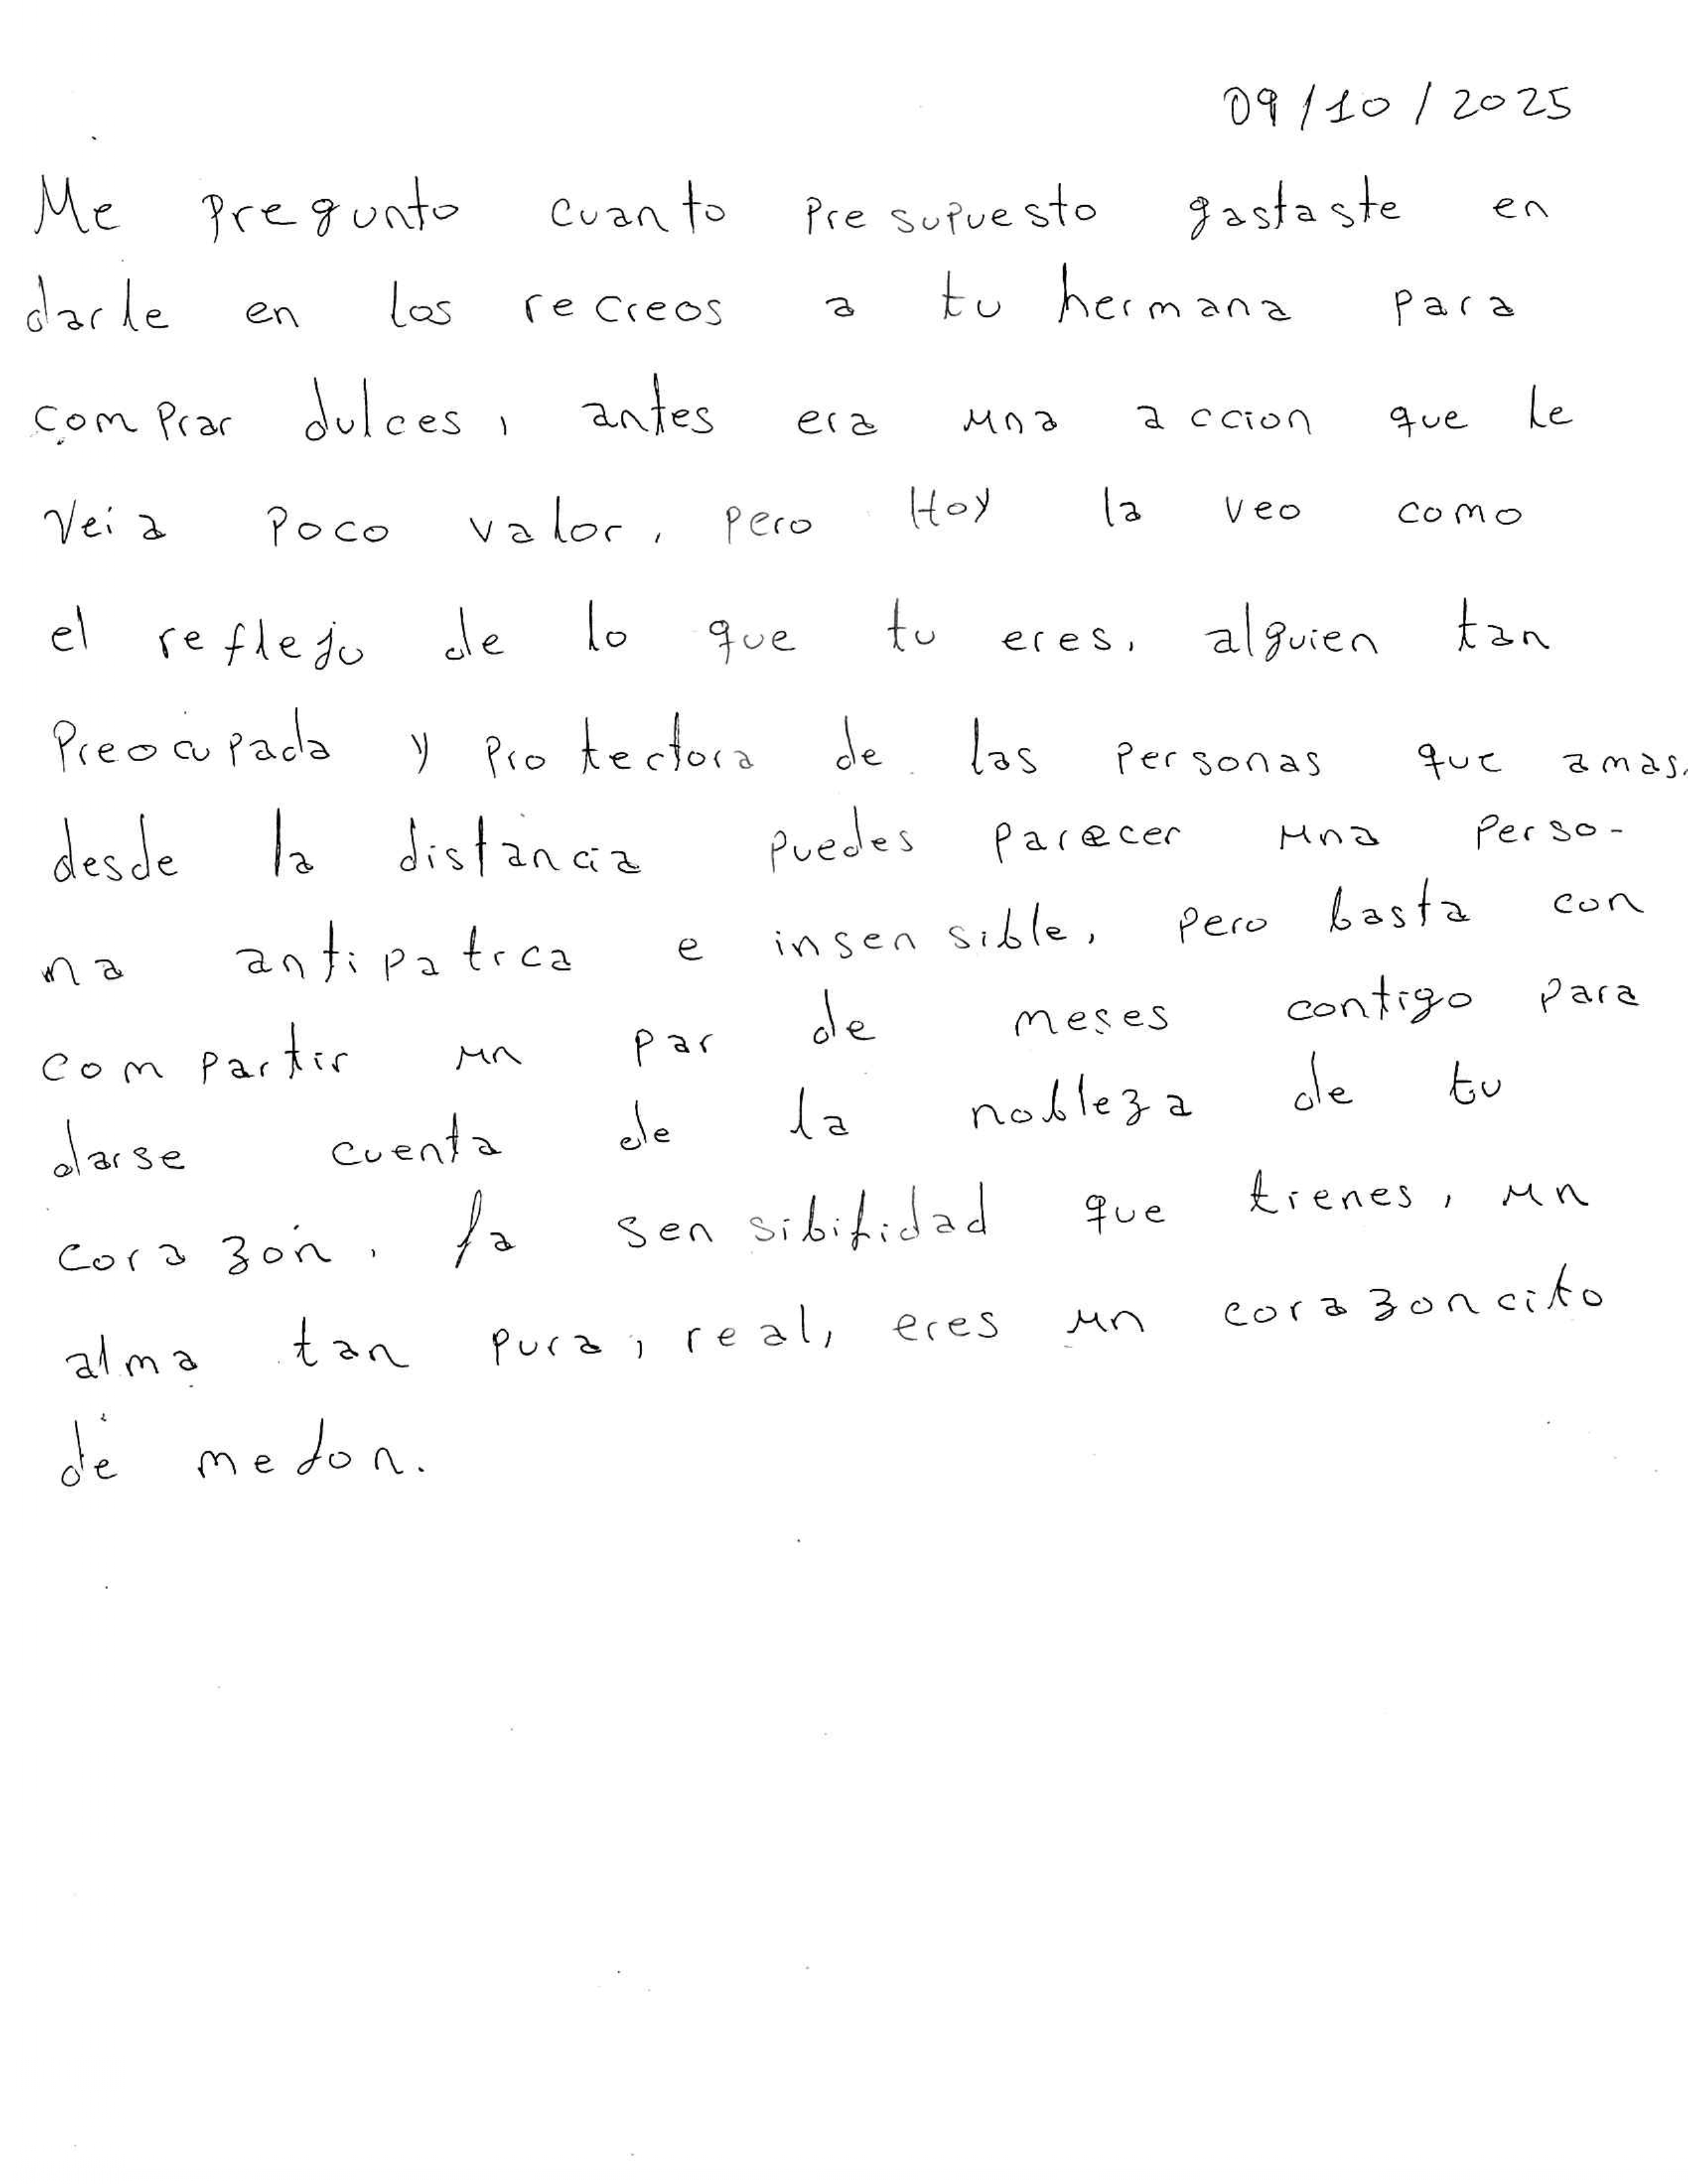 09/10/2025
Me pregunto cuanto presupuesto gastaste en
darle en los recreos a tu hermana para
comprar dulces, antes era una accion que le
veia poco valor, pero Hoy la veo como
el reflejo de lo que tu eres, alguien tan
Preocupada y protectora de las personas que amas.
desde la distancia puedes parecer una perso-
na antipatica e insensible, pero basta con
compartir un par de meses contigo para
darse cuenta de la nobleza de tu
corazón, la sensibilidad que tienes, un
alma tan pura, real, eres un corazoncito
de melon.